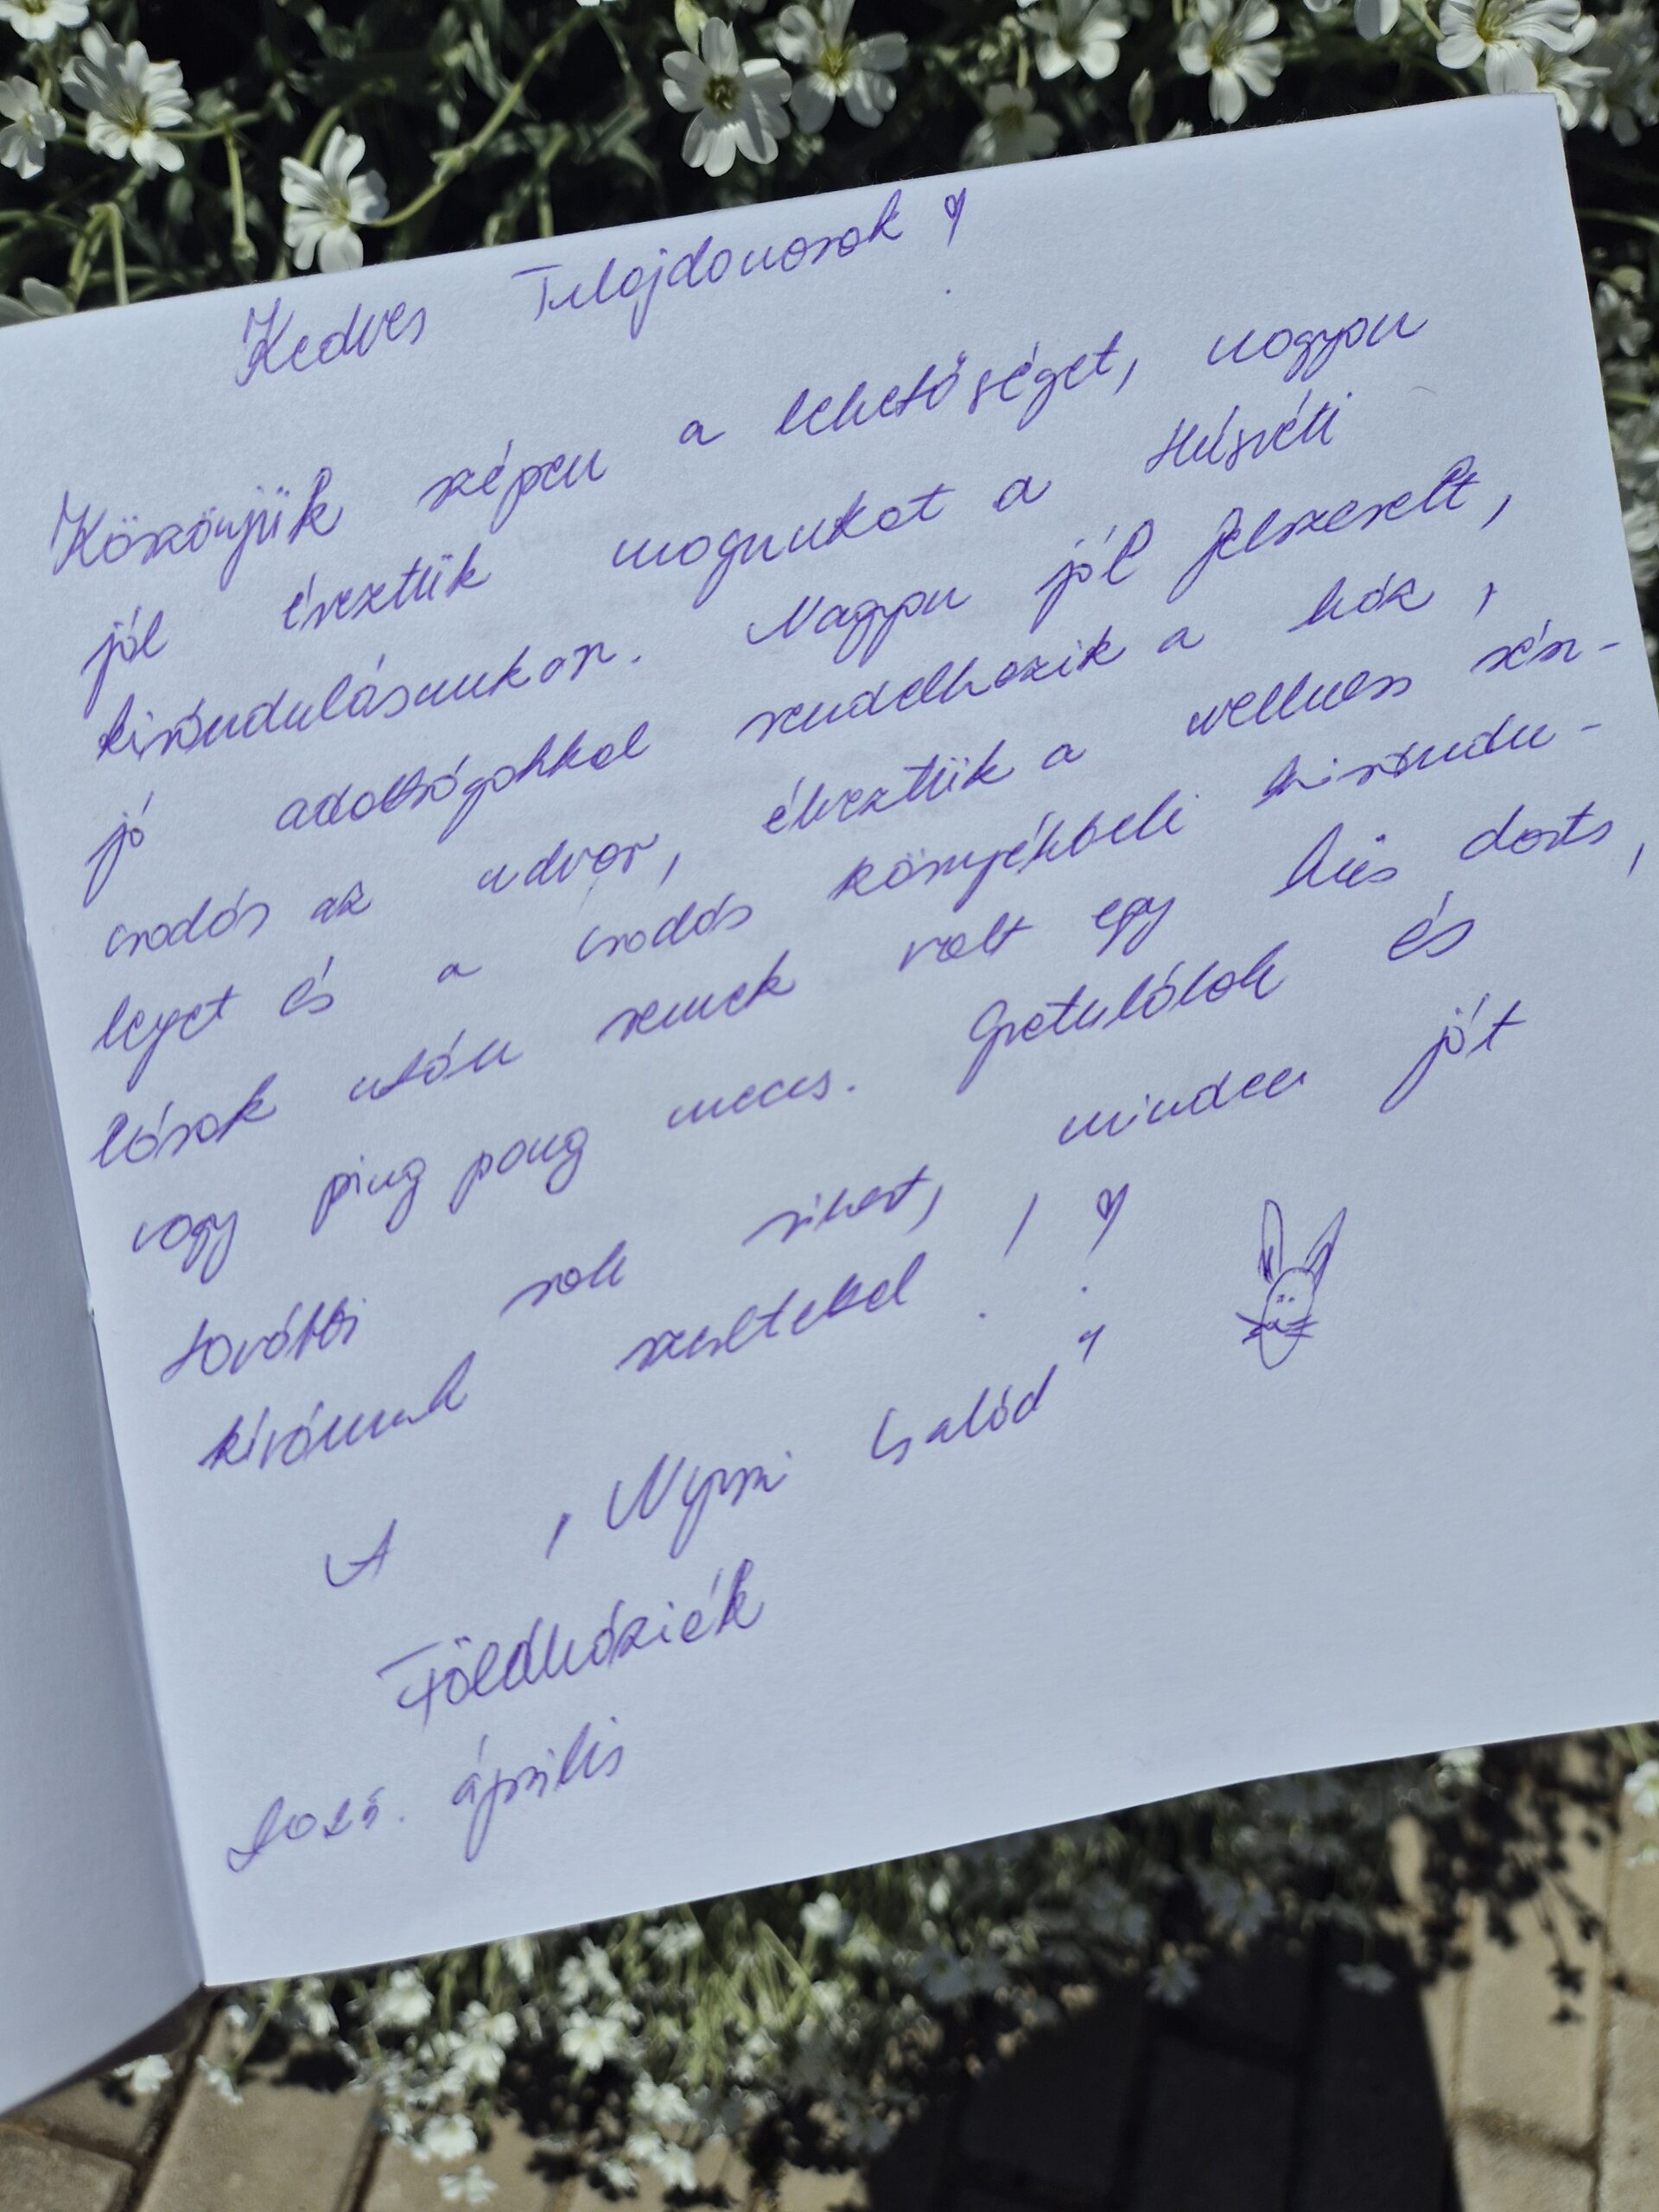 Kedves Tulajdonosok!
Köszönjük szépen a lehetőséget, nagyon
jól éreztük magunkat a Húsvéti
kirándulásunkon. Nagyon jól felszerelt,
jó adottságokkal rendelkezik a ház,
csodás az udvar, élveztük a wellness rész-
leget és a csodás környékbeli kirándu-
lások után remek volt egy kis darts,
vagy ping pong meccs. Gratulálok és
további sok sikert, minden jót
kívánunk szeretettel!!
A "Nyuszi Család"
Földháziék
2025. április